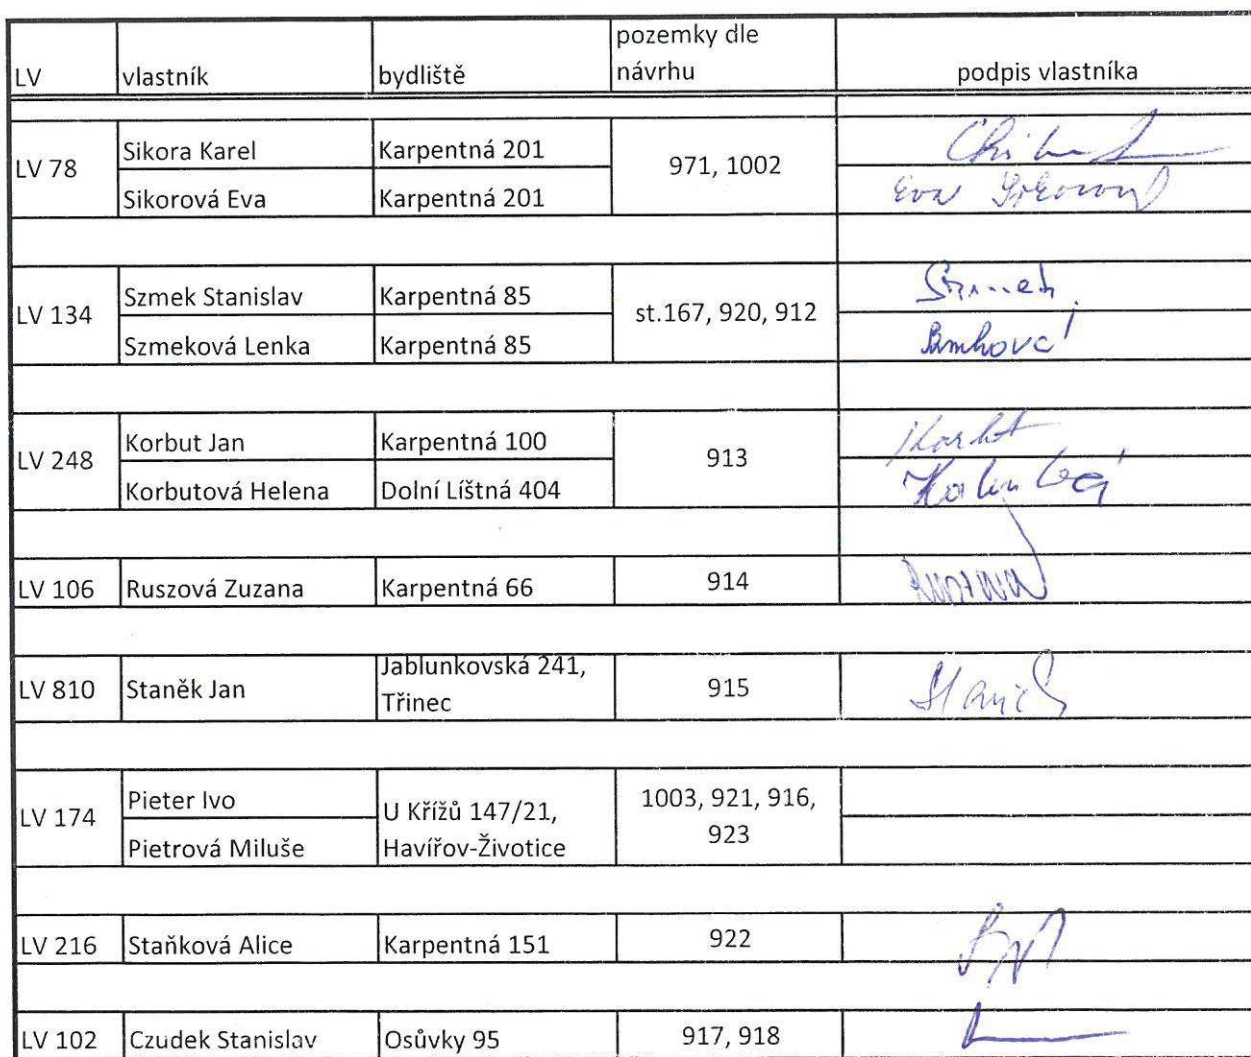 LV vlastník bydliště pozemky dle návrhu podpis vlastníka
LV 78 Sikora Karel Karpentná 201 971, 1002
Sikorová Eva Karpentná 201 Eva Sikorová
LV 134 Szmek Stanislav Karpentná 85 st.167, 920, 912 Szmek
Szmeková Lenka Karpentná 85
LV 248 Korbut Jan Karpentná 100 913
Korbutová Helena Dolní Líštná 404
LV 106 Ruszová Zuzana Karpentná 66 914
LV 810 Staněk Jan Jablunkovská 241, Třinec 915 Staněk
LV 174 Pieter Ivo U Křížů 147/21, Havířov-Životice 1003, 921, 916, 923
Pietrová Miluše
LV 216 Staňková Alice Karpentná 151 922
LV 102 Czudek Stanislav Osůvky 95 917, 918